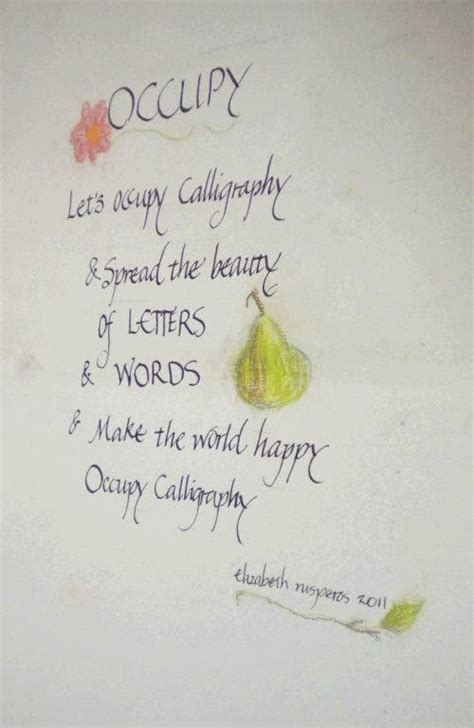 OCCUPY
Let's occupy Calligraphy
& Spread the beauty
of LETTERS
& WORDS
& Make the world happy
Occupy Calligraphy
elizabeth nisperos 2011